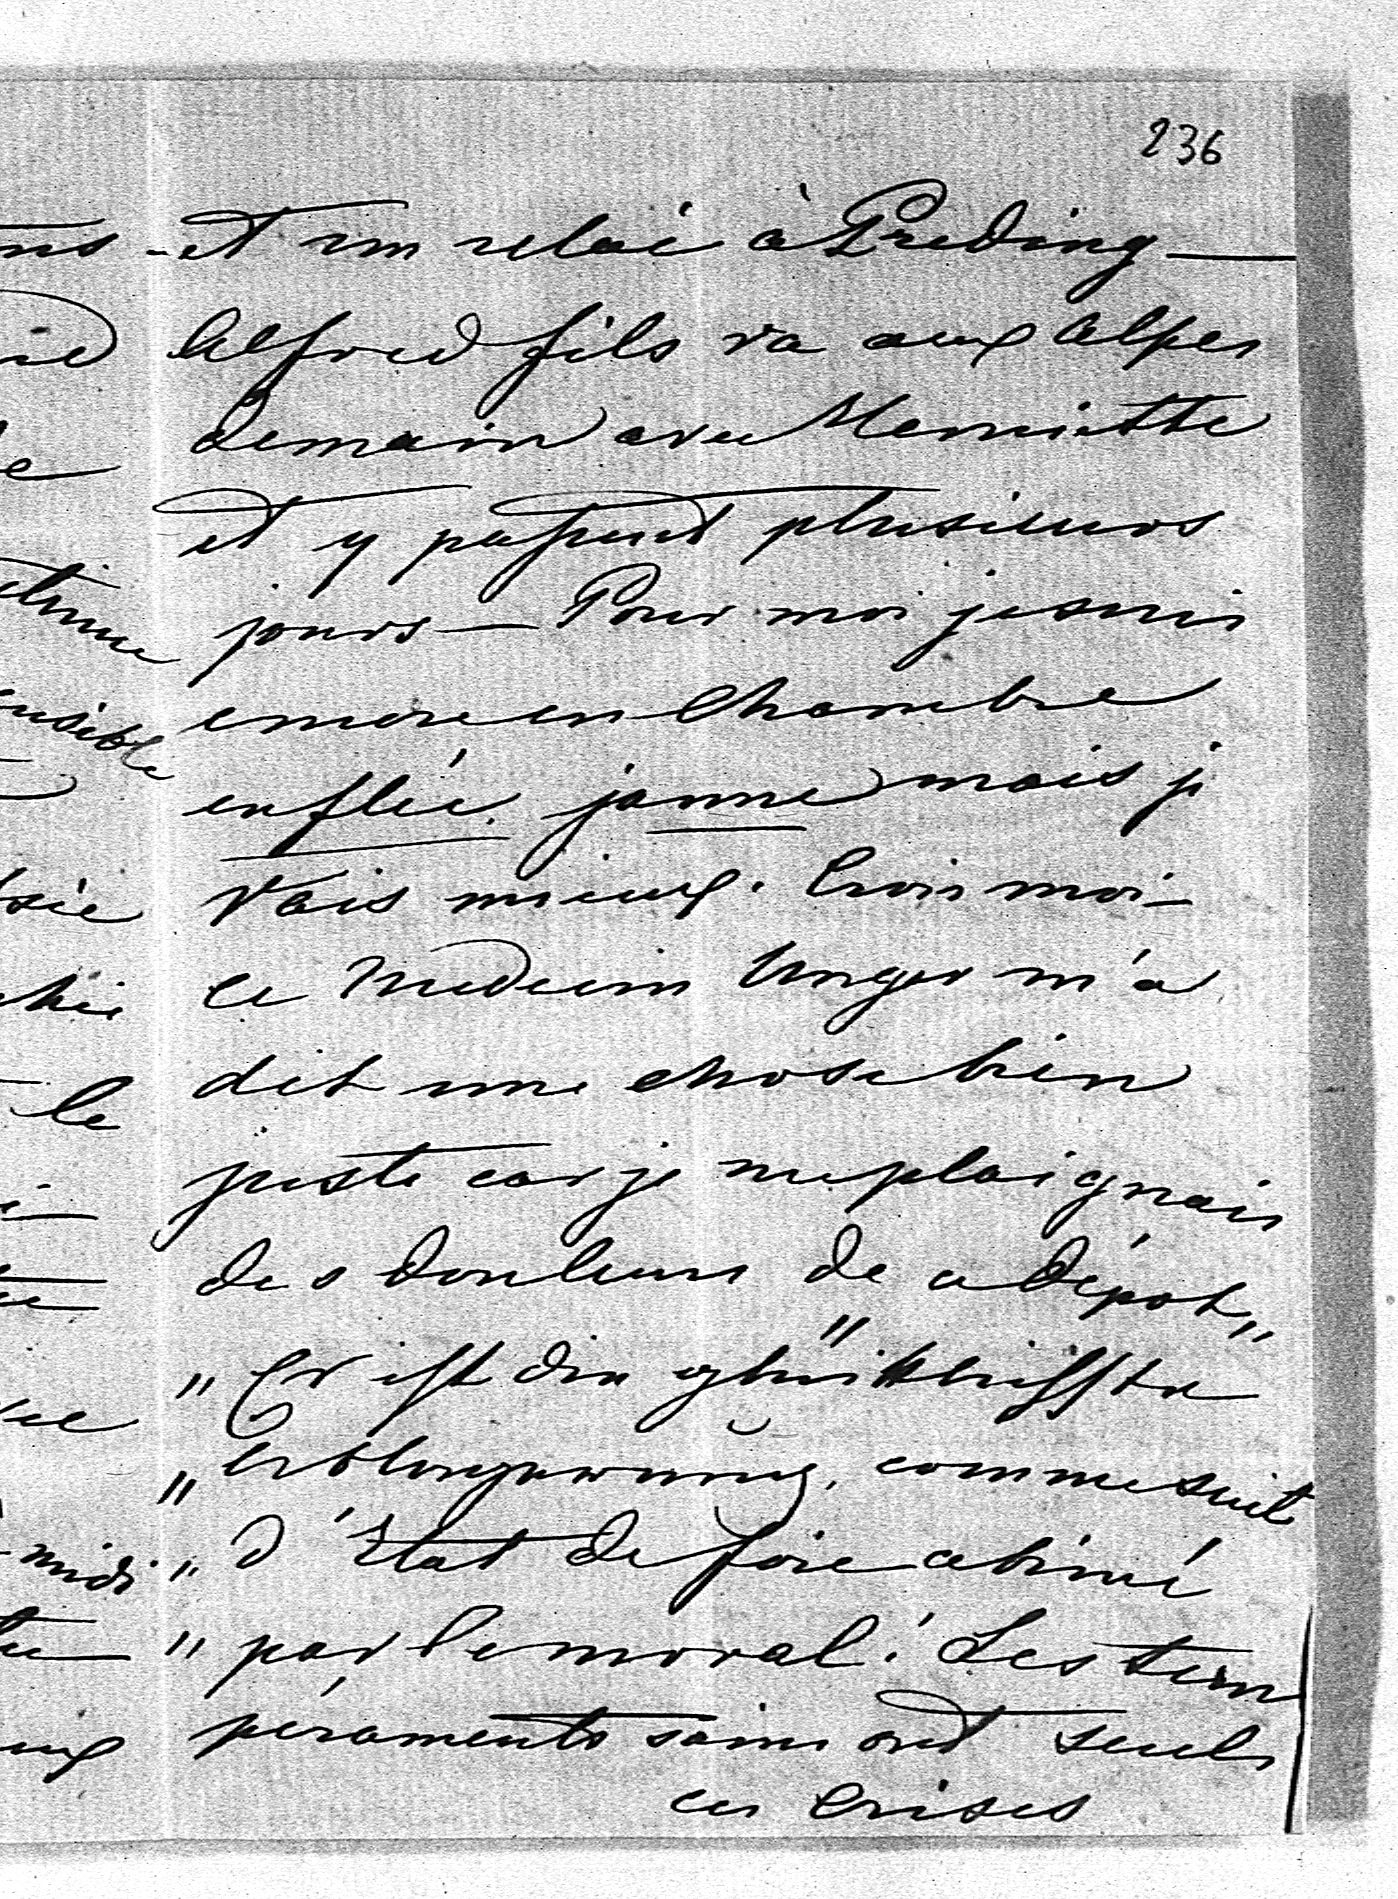 236
et un relai à Preding —
Alfred fils va aux Alpes
demain avec Henriette
et y passent plusieurs
jours — Pour moi je suis
encore en chambre
enflée, jaune mais je
vais mieux. Crois moi —
ce Medecin Unger m'a
dit une chose bien
juste car je me plaignais
des douleurs de ce dépot "
" Er ist die glücklichste
" comme suit
" d'État de foie abimé
" par le moral! Les tem
péraments sains ont seuls
ces crises